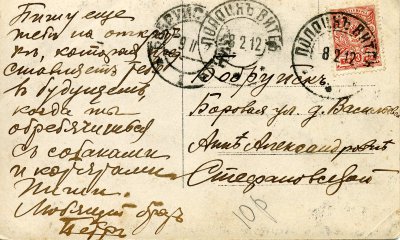 Пишу еще
тебѣ на открыт
кѣ, которая пред
ставляетъ тебя
въ будущемъ,
когда ты
обребячишься
съ собаками
и котятами.
Любящій братъ
Петръ
ПОЛОЦКЪ ВИТ
8 2 12
ПОЛОЦКЪ ВИТЕБ
8 2 12
Бобруйскъ
Боровая ул. д. Василевск
Аннѣ Александровнѣ
Стефановской
10р